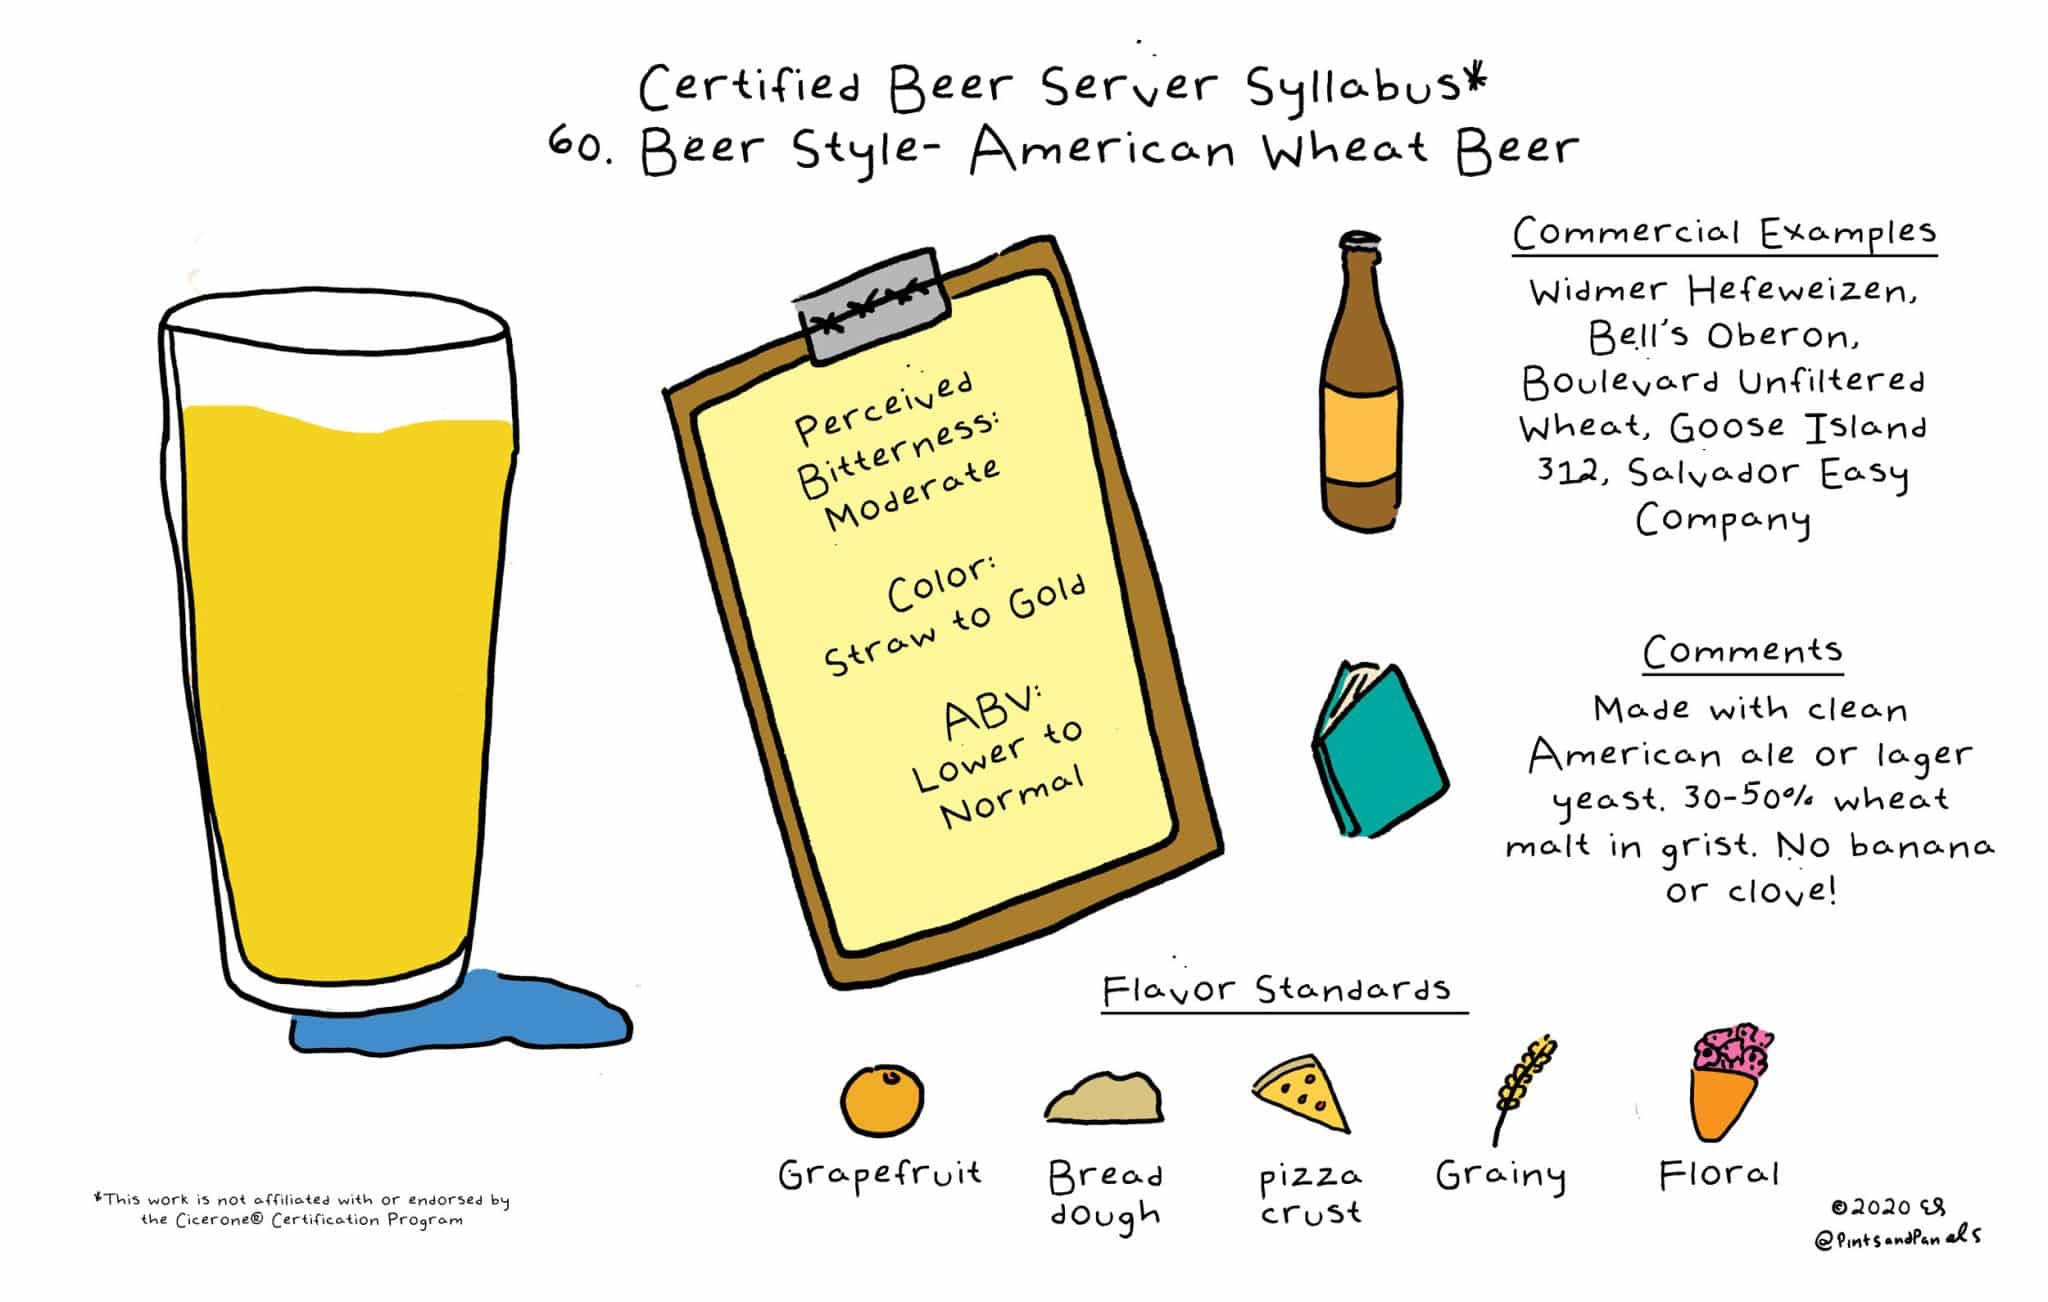 Certified Beer Server Syllabus*
60. Beer Style- American Wheat Beer
Perceived
Bitterness:
Moderate
Color:
Straw to Gold
ABV:
Lower to
Normal
Commercial Examples
Widmer Hefeweizen,
Bell's Oberon,
Boulevard Unfiltered
Wheat, Goose Island
312, Salvador Easy
Company
Comments
Made with clean
American ale or lager
yeast. 30-50% wheat
malt in grist. No banana
or clove!
Flavor Standards
Grapefruit
Bread
dough
pizza
crust
Grainy
Floral
*This work is not affiliated with or endorsed by
the Cicerone® Certification Program
©2020 ES
@PintsandPanels